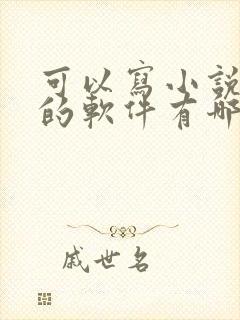 可以寫小説
的軟件有哪
戚世名